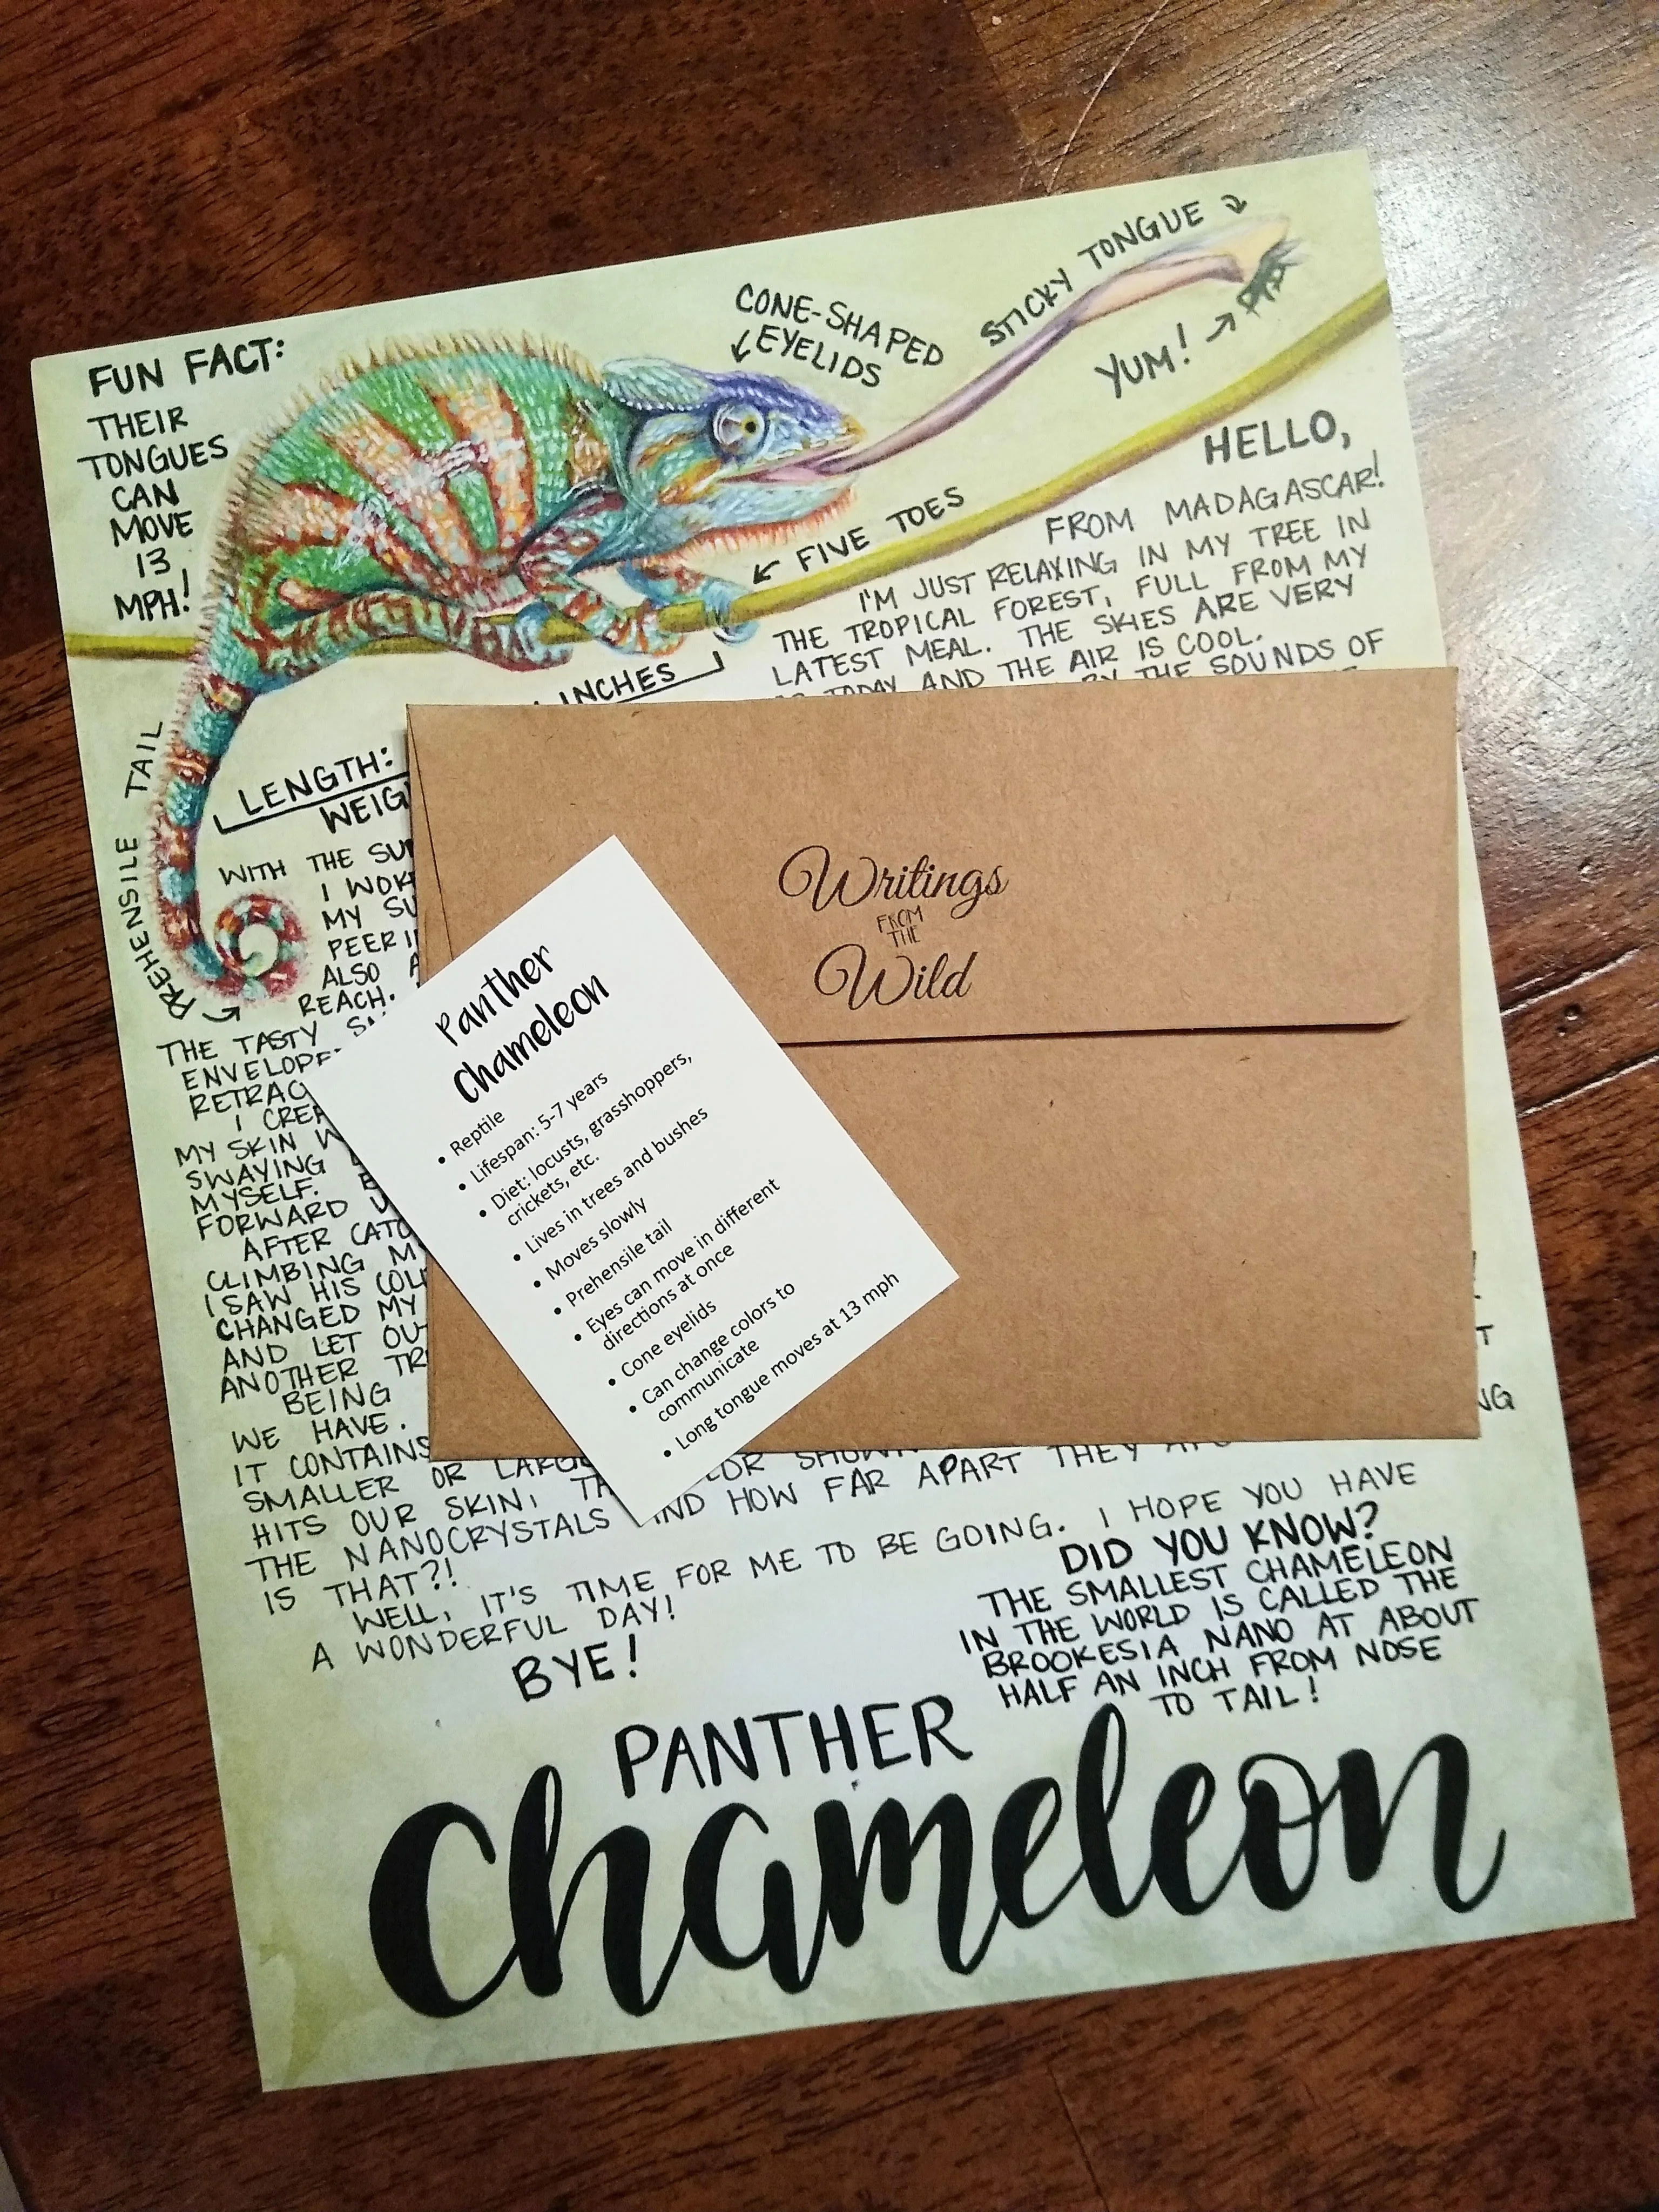 FUN FACT:
THEIR
TONGUES
CAN
MOVE
13
MPH!
CONE-SHAPED
EYELIDS
STICKY TONGUE
YUM!
FIVE TOES
INCHES
LENGTH:
PREHENSILE TAIL
HELLO,
FROM MADAGASCAR!
I'M JUST RELAXING IN MY TREE IN
THE TROPICAL FOREST, FULL FROM MY
LATEST MEAL. THE SKIES ARE VERY
TODAY AND THE AIR IS COOL.
BY THE SOUNDS OF
WITH THE
I
MY
ALSO
REACH.
THE TASTY
I
MY SKIN
SWAYING
MYSELF.
FORWARD
AFTER
CLIMBING
I SAW HIS
CHANGED MY
AND LET
ANOTHER
BEING
WE HAVE.
IT CONTAINS
SMALLER OR
HITS OUR SKIN,
THE NANOCRYSTALS AND HOW FAR APART THEY
IS THAT?!
WELL, IT'S TIME FOR ME TO BE GOING. I HOPE YOU HAVE
A WONDERFUL DAY!
BYE!
DID YOU KNOW?
THE SMALLEST CHAMELEON
IN THE WORLD IS CALLED THE
BROOKESIA NANO AT ABOUT
HALF AN INCH FROM NOSE
TO TAIL!
PANTHER
chameleon
Writings
FROM
THE
Wild
Panther
Chameleon
• Reptile
• Lifespan: 5-7 years
• Diet: locusts, grasshoppers,
crickets, etc.
• Lives in trees and bushes
• Moves slowly
• Prehensile tail
• Eyes can move in different
directions at once
• Cone eyelids
• Can change colors to
communicate
• Long tongue moves at 13 mph